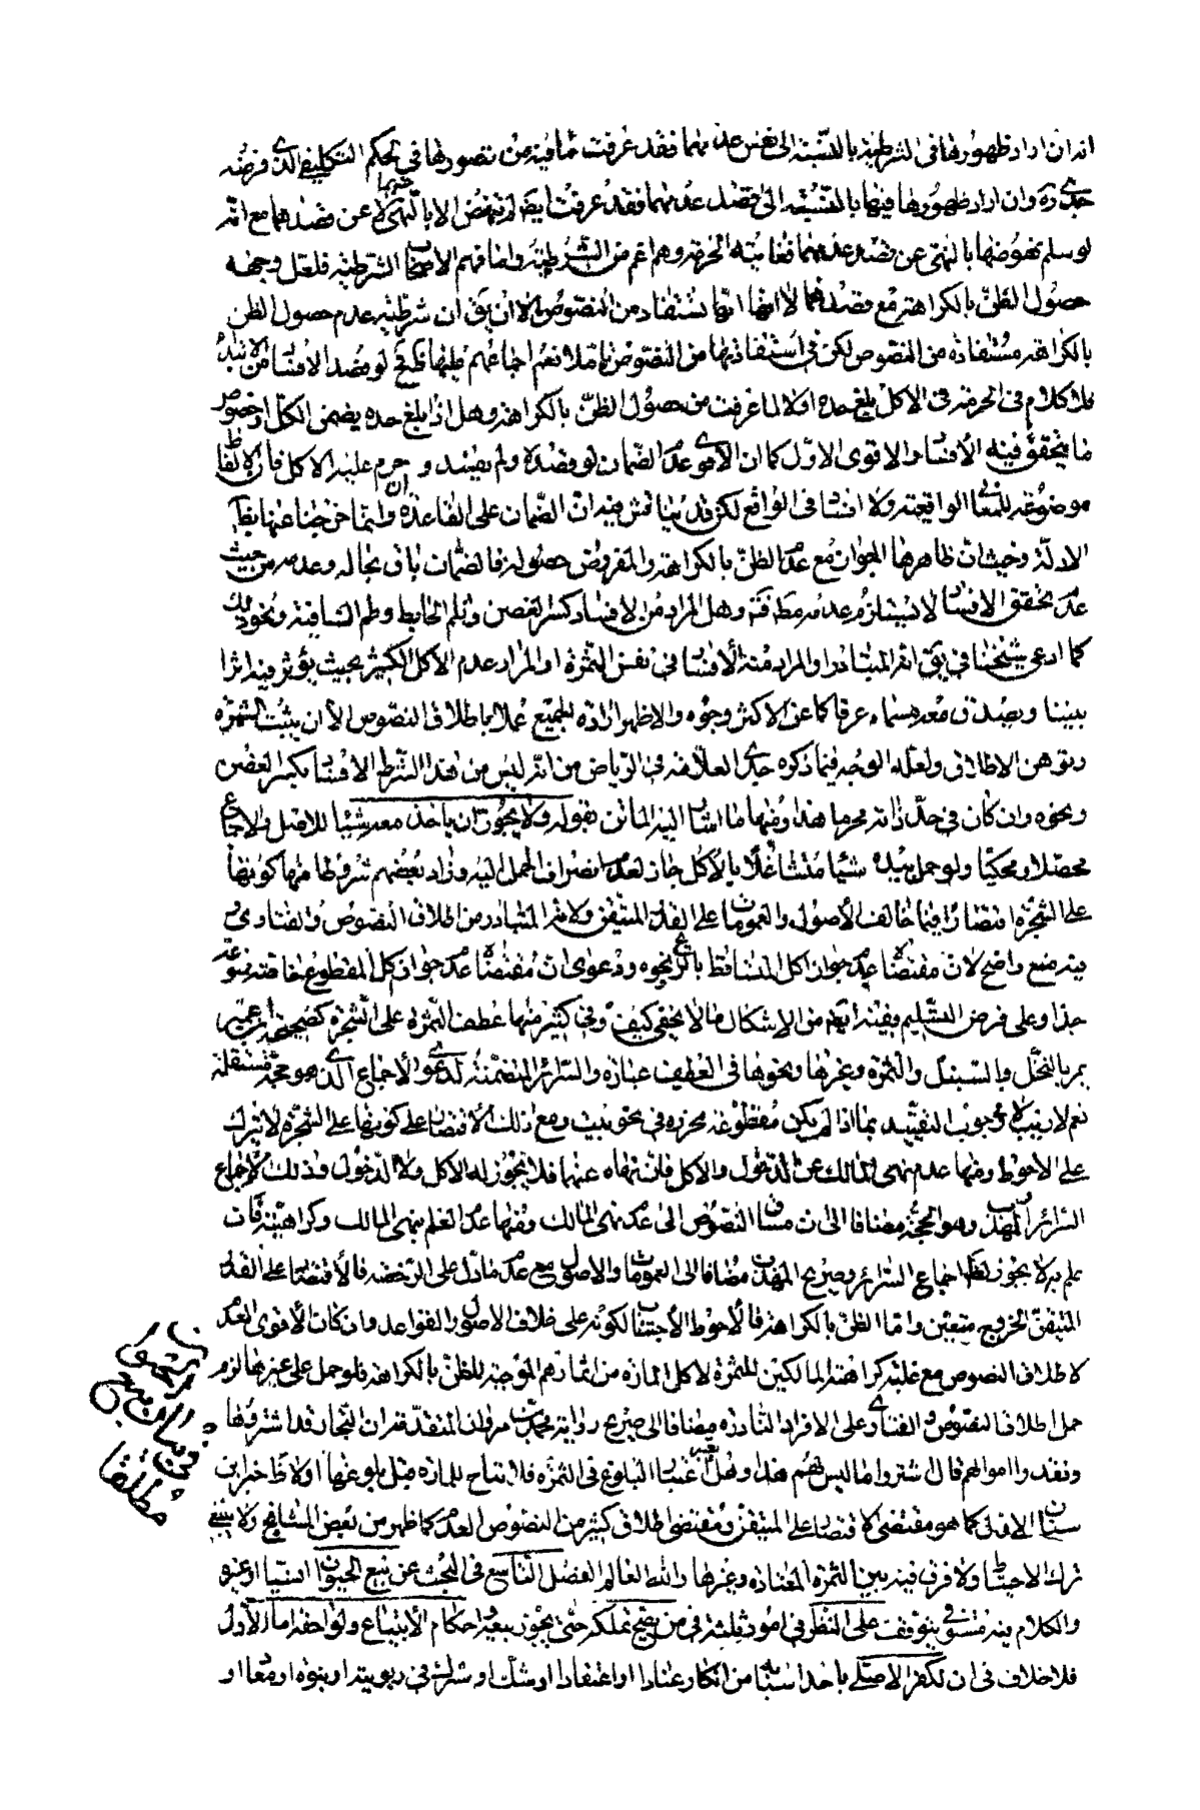 انه ان اراد ظهورها فى الشرطية بالنسبة الى نفس عدمهما فقد عرفت ما فيه من تصورها فى الحكم التكليفى الذى فرضه
جدى ره وان اراد ظهورها فيها بالنسبة الى قصد عدمهما فقد عرفت ايضا لم تنهض الا بالنهى عن قصدهما مع انه
لو سلم نهوضها بالنهى عن قصد عدمهما فغايته الحرمة وهم اعم من الشرطية واما فهم الاصحاب الشرطية فلعل وجهه
حصول الظن بالكراهة مع قصدهما لا انها انما تستفاد من النصوص الا ان يق ان شرطية عدم حصول الظن
بالكراهة مستفادة من النصوص لكن فى استفادتها من النصوص تامل نعم اجماعهم عليها لو قصد الافساد من الابتداء
فلا كلام فى الحرمة فى الاكل بلغ حده اولا لما عرفت من حصول الظن بالكراهة وهل اذا بلغ حده يضمن الكل او خصوص
ما يتحقق فيه الافساد والاقوى الاول كما ان الاقوى عدم الضمان لو قصده ولم يفسد و حرم عليه الاكل فان الالفاظ
موضوعة للمعانى الواقعية ولا افساد فى الواقع لكن قد يناقش فيه ان الضمان على القاعدة وانما خرجنا عنها بظاهر
الادلة وحيث ان ظاهرها الجواز مع عدم الظن بالكراهة والمفروض حصوله فالضمان باق بحاله وعدمه من حيث
عدم تحقق الافساد لا يستلزم عدمه مط فته وهل المراد من الافساد كسر الغصن وثلم الحايط وطم الساقية ونحو ذلك
كما ادعى شيخنا فى بق انه المتبادر او المراد منه الافساد فى نفس الثمرة او المراد عدم الاكل الكثير بحيث يؤثر فيه اثرا
بينا ويصدق معه مسماه عرفا كما عن الاكثر وجوه والاظهر ارادة الجميع عملا باطلاق النصوص الا ان يثبت الشهرة
وتوهن الاطلاق ولعله الوجه فيما ذكره جدى العلامة فى الرياض من انه ليس من هذا الشرط الافساد بكسر الغصن
ونحوه وان كان فى حد ذاته محرما هذا ومنها ما اشار اليه الماتن بقوله ولا يجوز ان ياخذ معه شيئا للاصل والاجماع
محصلا ومحكيا ولو حمل بيده شيئا متشاغلا بالاكل جاز لعدم انصراف الحمل اليه وزاد بعضهم شروطا منها كونها
على الشجرة اقتصارا فيما خالف الاصول والعمومات على القدر المتيقن ولانه المتبادر من اطلاق النصوص والفتاوى و
فيه منع واضح لان مقتضاه عدم جواز اكل المتساقط بالريح ونحوه ودعوى ان مقتضاه عدم جواز كل المقطوع خاصة ممنوعة
جدا وعلى فرض التسليم ففيه ايضا من الاشكال ما لا يخفى كيف وفى كثير منها عطف الثمرة على الشجرة كصحيحة ابن ابى عمير
يمر بالنخل والسنبل والثمرة وغيرها ونحوها فى العطيف عبارة والسرائر المتضمنة لدعوى الاجماع الذى هو حجة مستقلة
نعم لا ريب فى وجوب التقييد بما اذا لم يكن مقطوعة محرزة فى نحو بيت ومع ذلك الاقتصار على كونها على الشجرة لا يترك
على الاحوط ومنها عدم نهى المالك عن الدخول والاكل فان نهاه عنهما فلا يجوز له الاكل ولا الدخول وذلك لاجماع
السرائر والمهذب وهو الحجة مضافا الى ان مساق النصوص الى عدم نهى المالك ومنها عدم العلم بنهى المالك وكراهيته فان
علم به لا يجوز لظاهر اجماع السرائر وصريح المهذب مضافا الى العمومات والاصول مع عدم ما دل على الرخصة فالاقتصار على القدر
المتيقن الخروج متعين واما الظن بالكراهة فالاحوط الاجتناب لكونه على خلاف الاصول والقواعد وان كان الاقوى العدم
لاطلاق النصوص مع غلبة كراهة المالكين للثمرة لاكل المارة من اثمارهم الموجبة للظن بالكراهة فلو حمل على غيرها لزم
حمل اطلاق النصوص والفتاوى على الافراد النادرة مضافا الى صريح رواية محمد بن مروان المتقدمة ان التجار قد اشتروها
ونقدوا اموالهم قال اشتروا ما ليس لهم هذا وهل يعتبر البلوغ فى الثمرة فلا تباح للمارة قبل بلوغها اولا ظ خبر ابن
سنان الاول كما هو مقتضى الاقتصار على المتيقن ومقتضى اطلاق كثير من النصوص العدم كما ظهر من بعض المشايخ ولا ينبغى
ترك الاحتياط ولا فرق فيه بين الثمرة المعتادة وغيرها والله العالم الفصل التاسع فى البحث عن بيع الحيوان انسيا او غيره
والكلام فيه مستوفى يتوقف على النظر فى امور ثلثة فى من يصح تملكه حتى يجوز بيعه واحكام الابتياع ولواحقه اما الاول
فلا خلاف فى ان الكفر الاصلى باحد اسبابه من انكار عنادا او اعتقادا او شك او شرك فى ربوبية او نبوة او معاد او